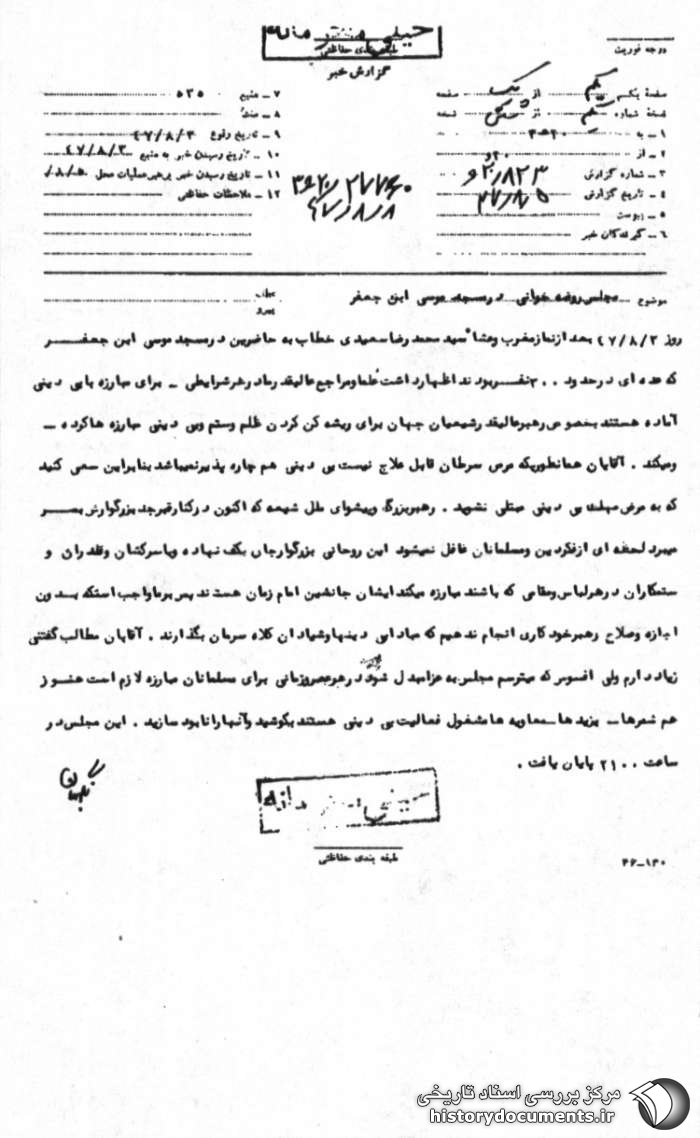 خیلی محرمانه
طبقه‌بندی حفاظتی
گزارش خبر
درجه فوریت
صفحهٔ یکم یکم از یک صفحه
نسخهٔ شماره یکم از شش نسخه
۱ ـ به
۲ ـ از ۲۰ و
۳ ـ شماره گزارش
۴ ـ تاریخ گزارش ۴۷/۸/۵
۵ ـ پیوست
۶ ـ گیرندگان خبر
۷ ـ منبع ۵۳۵
۸ ـ منشأ
۹ ـ تاریخ وقوع
۱۰ ـ تاریخ رسیدن خبر به منبع
۱۱ ـ تاریخ رسیدن خبر برهبر عملیات محل
۱۲ ـ ملاحظات حفاظتی
۴۷/۸/۸
موضوع ـ مجلس روضه خوانی در مسجد موسی ابن جعفر
عطف
پیرو
روز ۴۷/۸/۲ بعد از نماز مغرب وعشا سید محمد رضا سعیدی خطاب به حاضرین در مسجد موسی ابن جعفر
که عده ای در حدود ۲۰۰ نفر بودند اظهار داشت علما و مراجع عالیقدر ما در هر شرایطی ـ برای مبارزه با بی دینی
آماده هستند بخصوص رهبر عالیقدر شیعیان جهان برای ریشه کن کردن ظلم وستم وبی دینی مبارزه ها کرده ـ
ومیکند . آقایان همانطوریکه مرض سرطان قابل علاج نیست بی دینی هم چاره پذیر نمیباشد بنابراین سعی کنید
که به مرض مهلک بی دینی مبتلی نشوید . رهبر بزرگ وپیشوای ملل شیعه که اکنون در کنار قبر جد بزرگوارش بسر
میبرد لحظه ای از فکر دین ومسلمانان غافل نمیشود این روحانی بزرگوار جان بکف نهاده وبا سرکشان وقلدران و
ستمکاران در هر لباس ومقامی که باشند مبارزه میکند ایشان جانشین امام زمان هستند پس بر ما واجب استکه بدون
اجازه وصلاح رهبر خود کاری انجام ندهیم که مبادا بی دینها وشیادان کلاه سرمان بگذارند . آقایان مطالب گفتنی
زیاد دارم ولی افسوس که میترسم مجلس به عزا مبدل شود در هر عصر وزمانی برای مسلمانان مبارزه لازم است هنوز
هم شمرها ـ یزیدها ـ معاویه ها مشغول فعالیت بی دینی هستند بکوشید وآنها را نابود سازید . این مجلس در
ساعت ۲۱۰۰ پایان یافت .
خیلی محرمانه
طبقه بندی حفاظتی
۴۶-۱۳۰
مرکز بررسی اسناد تاریخی
historydocuments.ir